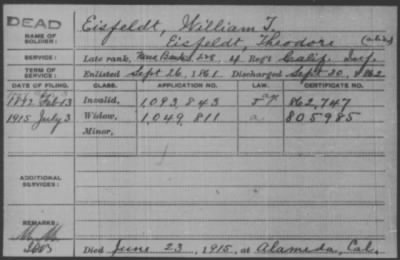 DEAD
NAME OF SOLDIER: Eisfeldt, William T.
Eisfeldt, Theodore (alias)
SERVICE: Late rank, Reg't Calif. Inf.
TERM OF SERVICE: Enlisted Sept 26, 1861. Discharged Sept 20, 1862
DATE OF FILING. CLASS. APPLICATION NO. LAW. CERTIFICATE NO.
1892 Feb 13 Invalid, 1,093,843 862,747
1915 July 3 Widow, 1,049,811 a 805985
Minor,
ADDITIONAL SERVICES:
REMARKS:
Died June 23, 1915, at Alameda, Cal.